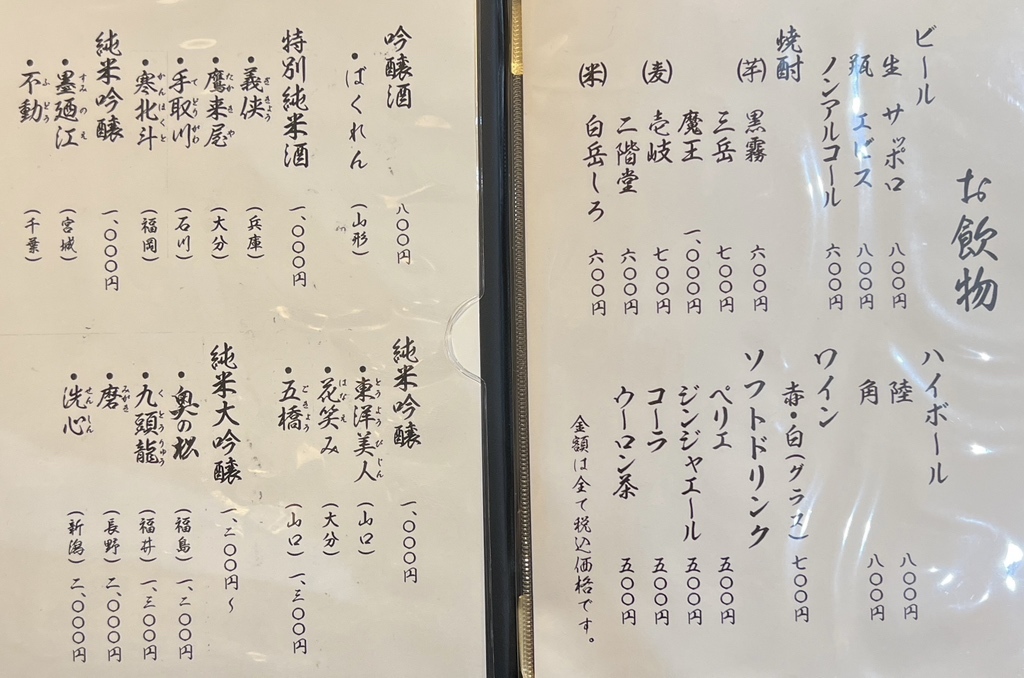 お飲物
ビール
生 サッポロ 八〇〇円
瓶 エビス 八〇〇円
ノンアルコール 六〇〇円
焼酎
(芋) 黒霧 六〇〇円
三岳 七〇〇円
魔王 一、〇〇〇円
(麦) 壱岐 七〇〇円
二階堂 六〇〇円
(米) 白岳しろ 六〇〇円
ハイボール
陸 八〇〇円
角 八〇〇円
ワイン
赤・白(グラス) 七〇〇円
ソフトドリンク
ペリエ 五〇〇円
ジンジャエール 五〇〇円
コーラ 五〇〇円
ウーロン茶 五〇〇円
金額は全て税込価格です。
吟醸酒 八〇〇円
・ばくれん (山形)
特別純米酒 一、〇〇〇円
・義侠 ぎきょう (兵庫)
・鷹来屋 たかきや (大分)
・手取川 てどりがわ (石川)
・寒北斗 かんほくと (福岡)
純米吟醸 一、〇〇〇円
・墨廼江 すみのえ (宮城)
・不動 ふどう (千葉)
純米吟醸 一、〇〇〇円
・東洋美人 とうようびじん (山口)
・花笑み はなえ (大分)
・五橋 ごきょう (山口) 一、三〇〇円
純米大吟醸 一、二〇〇円〜
・奥の松 (福島) 一、二〇〇円
・九頭龍 くとうりゅう (福井) 一、三〇〇円
・磨 みがき (長野) 二、〇〇〇円
・洗心 せんしん (新潟) 二、〇〇〇円